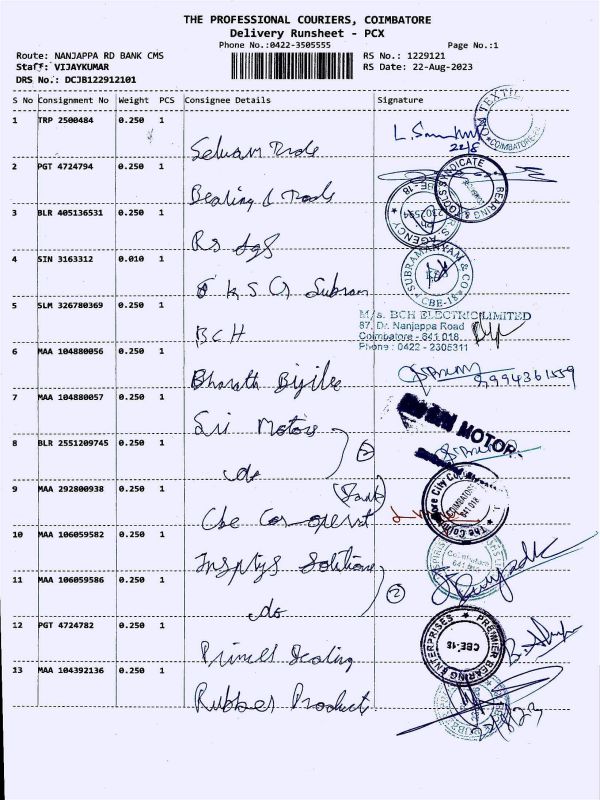 THE PROFESSIONAL COURIERS, COIMBATORE
Delivery Runsheet - PCX
Phone No.:0422-3505555
Page No.:1
Route: NANJAPPA RD BANK CMS
RS No.: 1229121
Staff: VIJAYKUMAR
RS Date: 22-Aug-2023
DRS No.: DCJB122912101
S No Consignment No Weight PCS Consignee Details Signature
1 TRP 2500484 0.250 1
TEXTIL
COIMBATORE
22/8
Selvam Trade
2 PGT 4724794 0.250 1
BEARING & TOOLS SYNDICATE
Bearing & Tools
CBE-18
3 BLR 405136531 0.250 1
AGENCY
Rs Ags
4 SIN 3163312 0.010 1
SUBRAMANYAM & CO
CBE-18
K S G Subram
5 SLM 326780369 0.250 1
M/s. BCH ELECTRIC LIMITED
87, Dr. Nanjappa Road
Coimbatore - 641 018.
Phone : 0422 - 2305311
BCH
6 MAA 104880056 0.250 1
9994361559
Bharath Bijlee
7 MAA 104880057 0.250 1
MOTOR
Sri Motors
8 BLR 2551209745 0.250 1
2
do
9 MAA 292800938 0.250 1
(Bank)
The Coimbatore City
COIMBATORE
641 018
Cbe Co-operat
10 MAA 106059582 0.250 1
Coimbatore
641
Solutions
11 MAA 106059586 0.250 1
2
do
12 PGT 4724782 0.250 1
PREMIER BEARING ENTERPRISES
CBE-18
Princes Sealing
13 MAA 104392136 0.250 1
Rubber Product
22/8/23